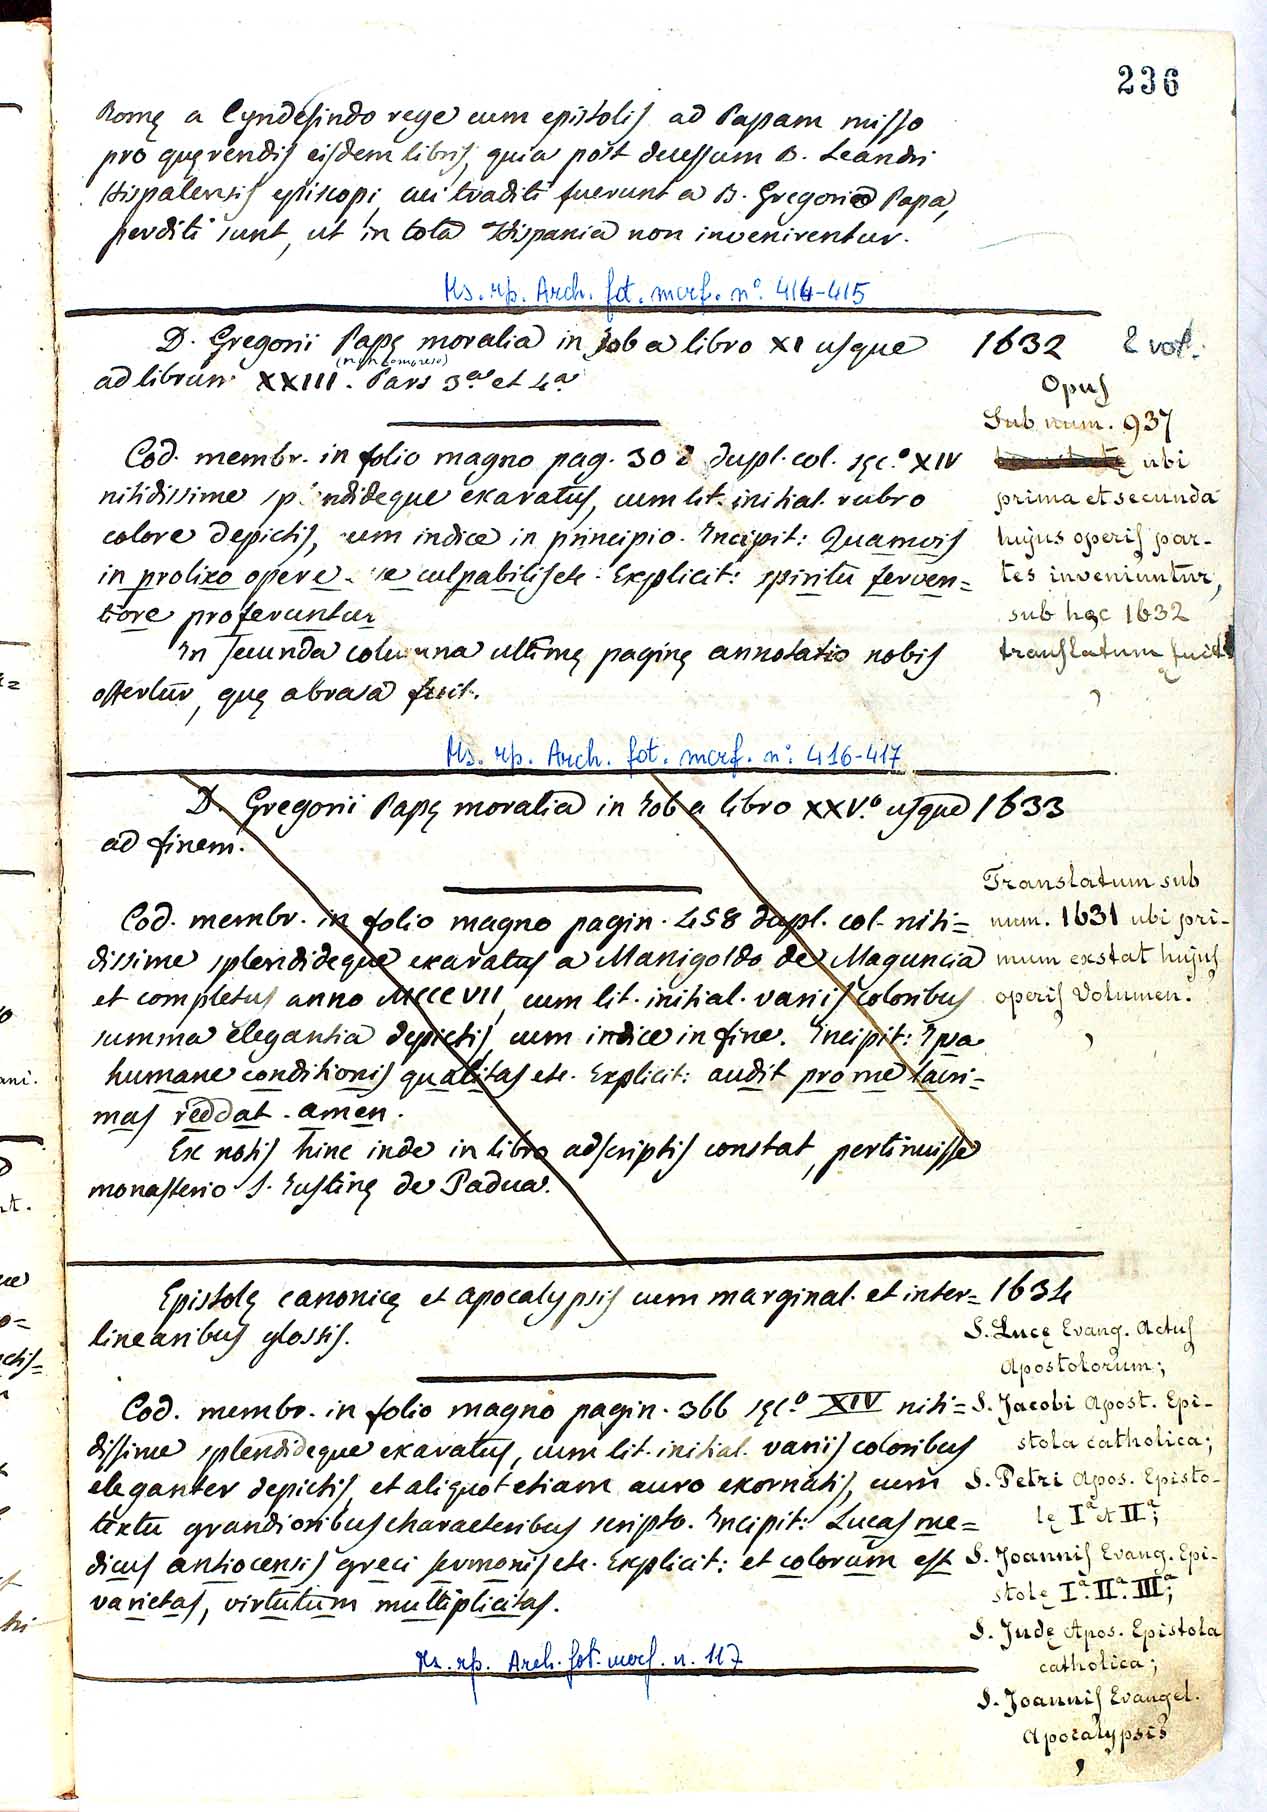 236
Romę a Cyndesindo rege cum epistolis ad Papam misso
pro quęrendis eisdem libris, quia post decessum B. Leandri
Hispalensis episcopi cui traditi fuerunt a B. Gregorio Papa,
perditi sunt, ut in tota Hispania non invenirentur.
Ms. rp. Arch. fot. mcrf. n.º 414-415
D. Gregorii Papę moralia in Job a libro XI usque
ad librum XXIII. Pars 3.ª et 4.ª
(non compreso)
1632 2 vol.
Opus
Sub num. 937
ubi
prima et secunda
hujus operis par-
tes inveniuntur,
sub hac 1632
translatum fuit
Cod. membr. in folio magno pag. 302 dupl. col. sęc.º XIV
nitidissime splendideque exaratus, cum lit. initial. rubro
colore depictis, cum indice in principio. Incipit: Quamvis
in prolixo opere culpabilis etc. Explicit: spiritu ferven=
tiore proferuntur
In secunda columna ultimę paginę annotatio nobis
offertur, quę abrasa fuit.
Ms. rp. Arch. fot. mcrf. n.º 416-417
D. Gregorii Papę moralia in Iob a libro XXV.º usque 1633
ad finem.
Translatum sub
num. 1631 ubi pri-
mum exstat hujus
operis Volumen.
Cod. membr. in folio magno pagin. 458 dupl. col. niti=
dissime splendideque exaratus a Manigoldo de Maguncia
et completus anno MCCCVII, cum lit. initial. variis coloribus
summa elegantia depictis, cum indice in fine. Incipit: Ipsa
humane conditionis qualitas etc. Explicit: audit pro me lacri=
mas reddat. amen.
Ex notis hinc inde in libro adscriptis constat, pertinuisse
monasterio S. Iustinę de Padua.
Epistolę canonicę et apocalypsis cum marginal. et inter= 1634
linearibus glossis.
S. Lucę Evang. Actus
Apostolorum;
S. Jacobi Apost. Epi-
stola catholica;
S. Petri Apos. Episto-
lę Iª et IIª;
S. Joannis Evang. Epi-
stolę Iª. IIª. IIIª;
S. Judę Apos. Epistola
catholica;
S. Joannis Evangel.
Apocalypsis
Cod. membr. in folio magno pagin. 366 sęc.º XIV niti=
dissime splendideque exaratus, cum lit. initial. variis coloribus
eleganter depictis, et aliquot etiam auro exornatis, cum
textu grandioribus characteribus scripto. Incipit: Lucas me=
dicus antiocensis greci sermonis etc. Explicit: et colorum est
varietas, virtutum multiplicitas.
Ms. rp. Arch. fot. mcrf. n. 117